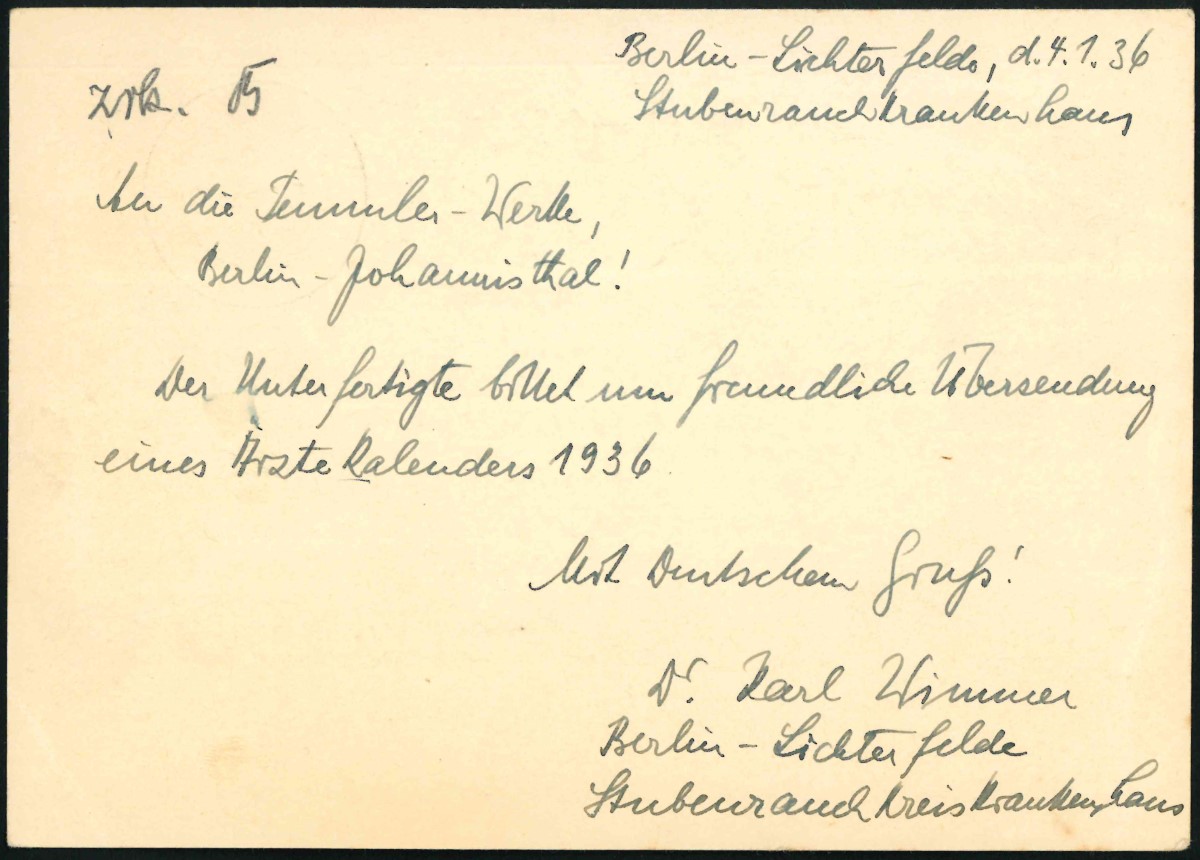 Berlin-Lichterfelde, d. 4.1.36
Stubenrauchkrankenhaus
An die Temmler-Werke,
Berlin-Johannisthal!
Der Unterfertigte bittet um freundliche Übersendung
eines Ärztekalenders 1936
Mit Deutschem Gruß!
Dr. Karl Wimmer
Berlin-Lichterfelde
Stubenrauch Kreiskrankenhaus